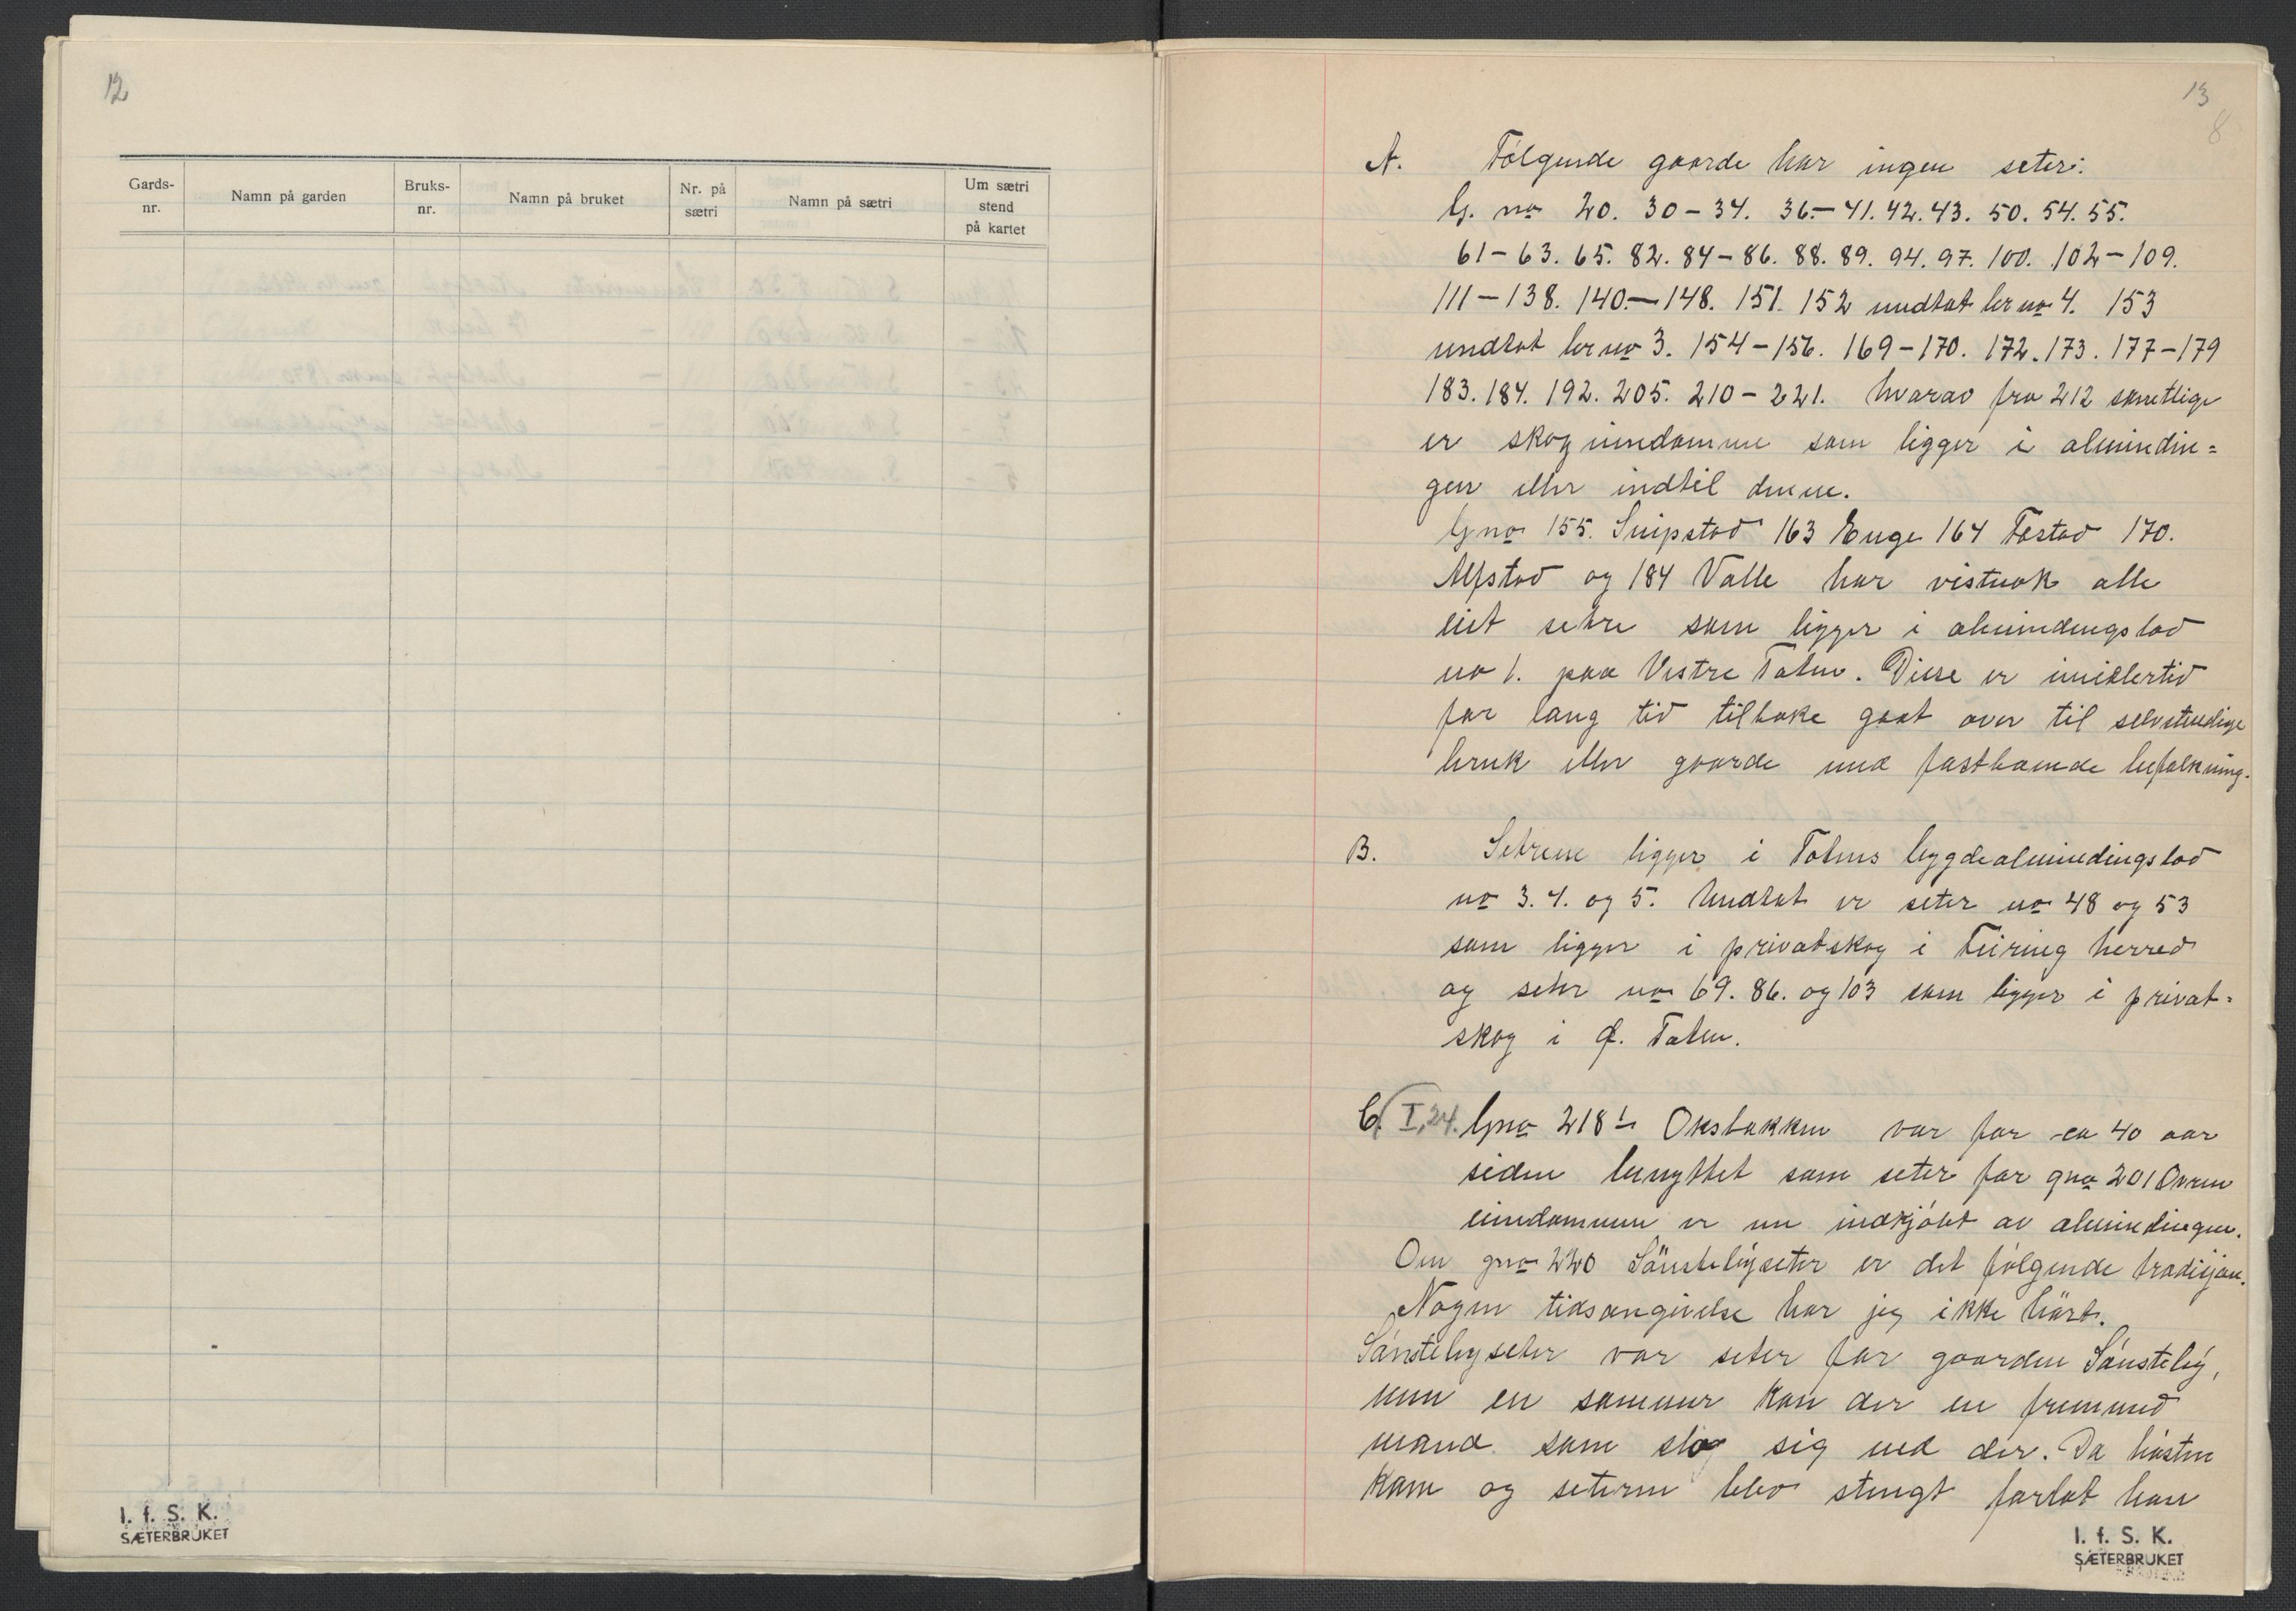 12
Gards-
nr.
Namn på garden
Bruks-
nr.
Namn på bruket
Nr. på
sætri
Namn på sætri
Um sætri
stend
på kartet
I. f. S. K.
SÆTERBRUKET
13
8
A. Følgende gaarde har ingen seter:
G. no 20. 30-34. 36.-41. 42. 43. 50. 54. 55.
61-63. 65. 82. 84-86. 88. 89. 94. 97. 100. 102-109.
111-138. 140.-148. 151. 152 undtat br no 4. 153
undtat br no 3. 154-156. 169-170. 172. 173. 177-179
183. 184. 192. 205. 210-221. hvorav fra 212 samtlige
er skogeiendomme som ligger i almindin=
gen eller indtil denne.
Gno 155. Snipstad 163 Enge 164 Fostad 170.
Alfstad og 184 Valle har vistnok alle
eiet setre som ligger i almindingslod
no 1. paa Vestre Toten. Disse er imidlertid
for lang tid tilbake gaat over til selvstendige
bruk eller gaarde med fastboende befolkning.
B. Setrene ligger i Totens bygdealmindingslod
no 3. 4. og 5. Undtat er seter no 48 og 53
som ligger i privatskog i Feiring herred
og seter no 69. 86. og 103 som ligger i privat=
skog i Ø. Toten.
C. I,24. Gno 218 1 Oksbakken var for ca 40 aar
siden benyttet som seter for gno 201 Ovren
eiendommen er nu indkjøbt av almindingen.
Om gno 220 Sønstebyseter er det følgende tradisjon.
Nogen tidsangivelse har jeg ikke hørt.
Sønstebyseter var seter for gaarden Sønsteby,
men en sommer kom der en fremmed
mand som slog sig ned der. Da høsten
kom og seteren blev stengt forlot han
I. f. S. K.
SÆTERBRUKET